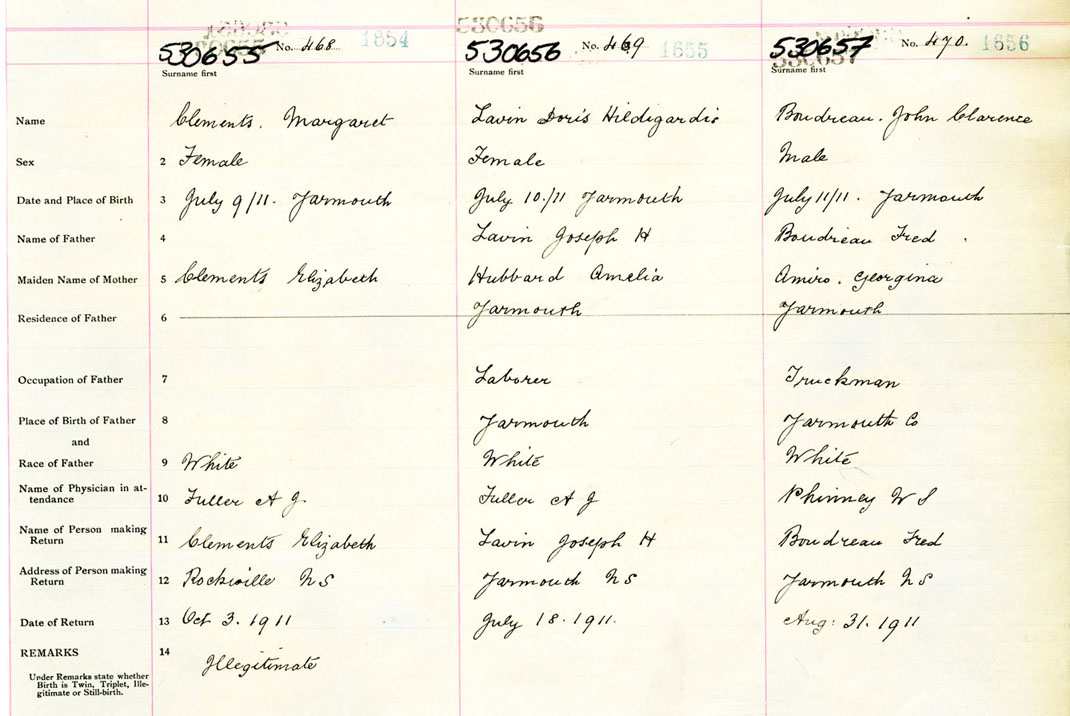 530656
530655 No. 468. 1654 530656 No. 469 1655 530657 No. 470. 1656
530657
Surname first Surname first Surname first
Name Clements. Margaret Lavin Doris Hildigardis Boudreau. John Clarence
Sex 2 Female Female Male
Date and Place of Birth 3 July 9/11. Yarmouth July 10./11 Yarmouth July 11/11. Yarmouth
Name of Father 4 Lavin Joseph H Boudreau Fred
Maiden Name of Mother 5 Clements Elizabeth Hubbard Amelia Amiro. Georgina
Residence of Father 6 Yarmouth Yarmouth
Occupation of Father 7 Laborer Truckman
Place of Birth of Father 8 Yarmouth Yarmouth Co
and
Race of Father 9 White White White
Name of Physician in at-
tendance 10 Fuller A G. Fuller A G Phinney W S
Name of Person making
Return 11 Clements Elizabeth Lavin Joseph H Boudreau Fred
Address of Person making
Return 12 Rockville N S Yarmouth N S Yarmouth N S
Date of Return 13 Oct 3. 1911 July 18. 1911. Aug: 31. 1911
REMARKS 14 Illegitimate
Under Remarks state whether
Birth is Twin, Triplet, Ille-
gitimate or Still-birth.